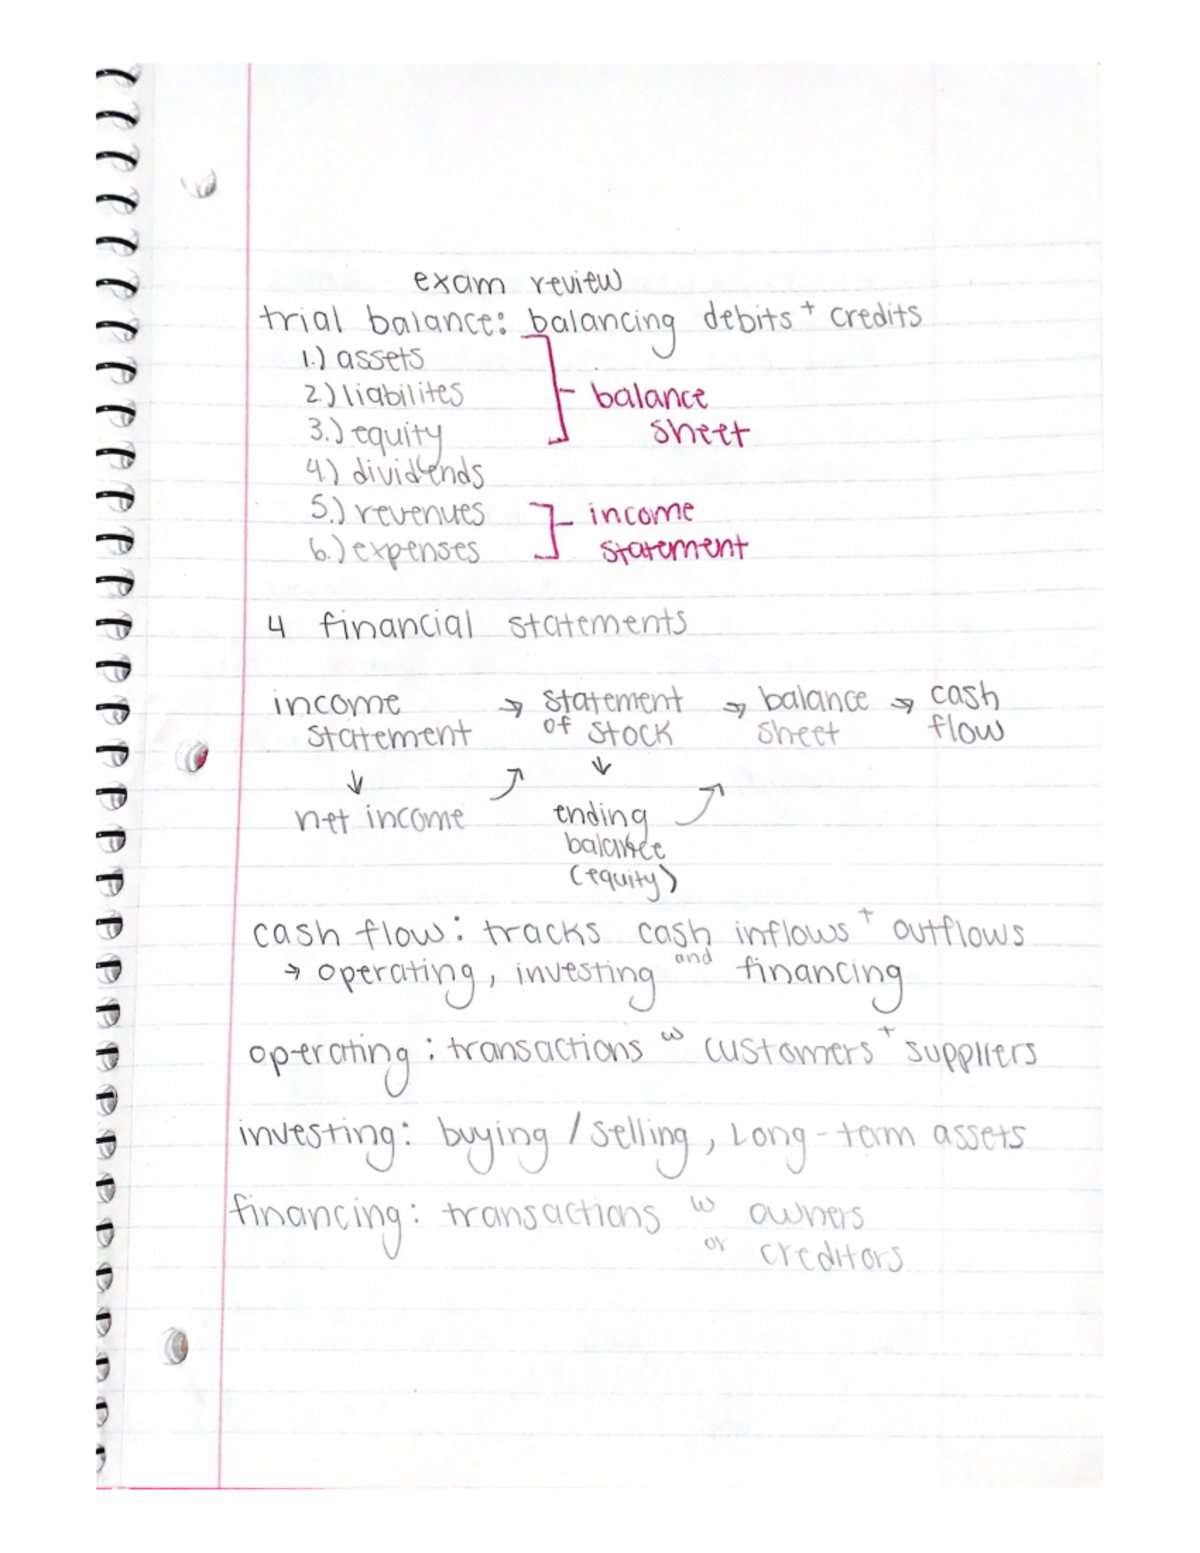 exam review
trial balance: balancing debits + credits
1.) assets
2.) liabilites
3.) equity
balance
sheet
4.) dividends
5.) revenues
6.) expenses
income
statement
4 financial statements
income statement → statement of stock → balance sheet → cash flow
↓ ↗ ↓ ↗
net income
ending
balance
(equity)
cash flow: tracks cash inflows + outflows
→ operating, investing and financing
operating: transactions w customers + suppliers
investing: buying / selling, long-term assets
financing: transactions w owners
or creditors